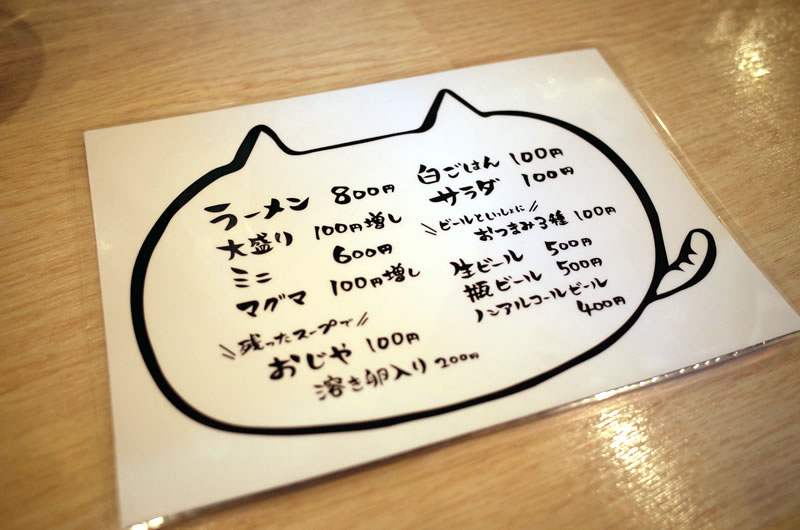 ラーメン 800円
大盛り 100円増し
ミニ 600円
マグマ 100円増し
\\残ったスープで//
おじや 100円
溶き卵入り 200円
白ごはん 100円
サラダ 100円
\\ビールといっしょに//
おつまみ3種 100円
生ビール 500円
瓶ビール 500円
ノンアルコールビール
400円